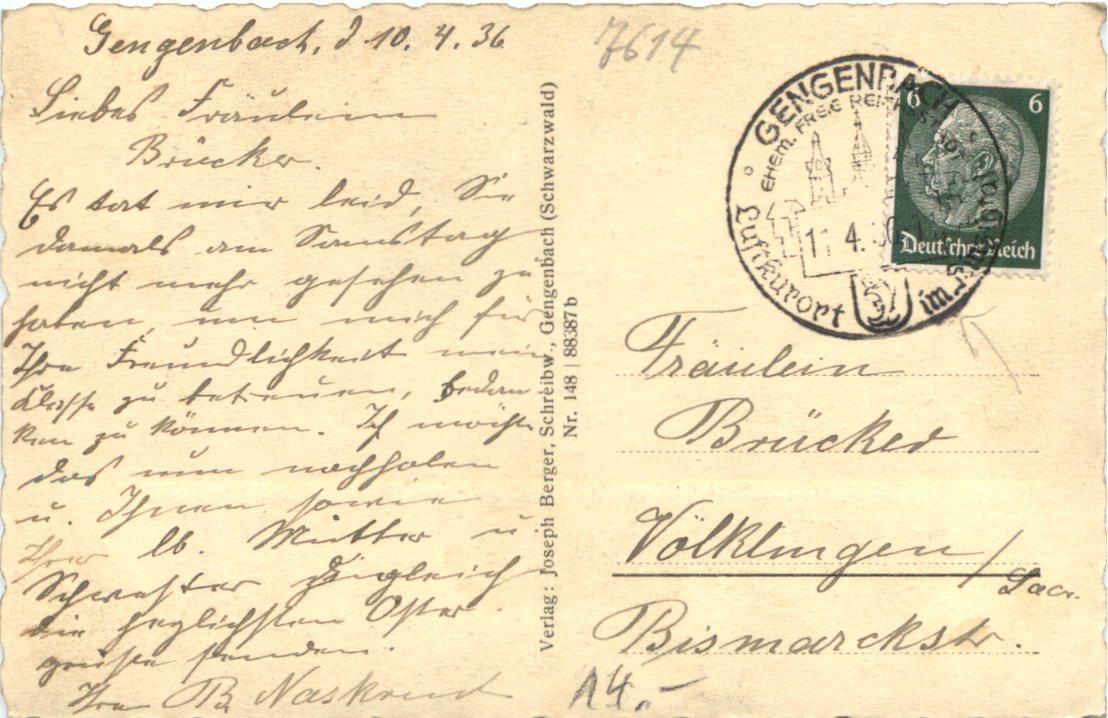 Gengenbach, d. 10. 4. 36.
Liebes Fräulein
Brücker.
Es tat mir leid, Sie
damals am Samstag
nicht mehr gesehen zu
haben, um mich für
Ihre Freundlichkeit, mein
Klasse zu betreuen, bedan
ken zu können. Ich möchte
das nun nachholen
u. Ihnen sowie
Ihrer lb. Mutter u.
Schwester zugleich
die herzlichsten Oster
grüße senden.
Ihre B.
Verlag: Joseph Berger, Schreibw., Gengenbach (Schwarzwald)
Nr. 148 | 88387 b
7614
GENGENBACH
EHEM. FREIE REICHSSTADT
Luftkurort im
11. 4. 36
6 6
Deutsches Reich
Fräulein
Brücker
Völklingen /
Saar.
Bismarckstr.
14.-